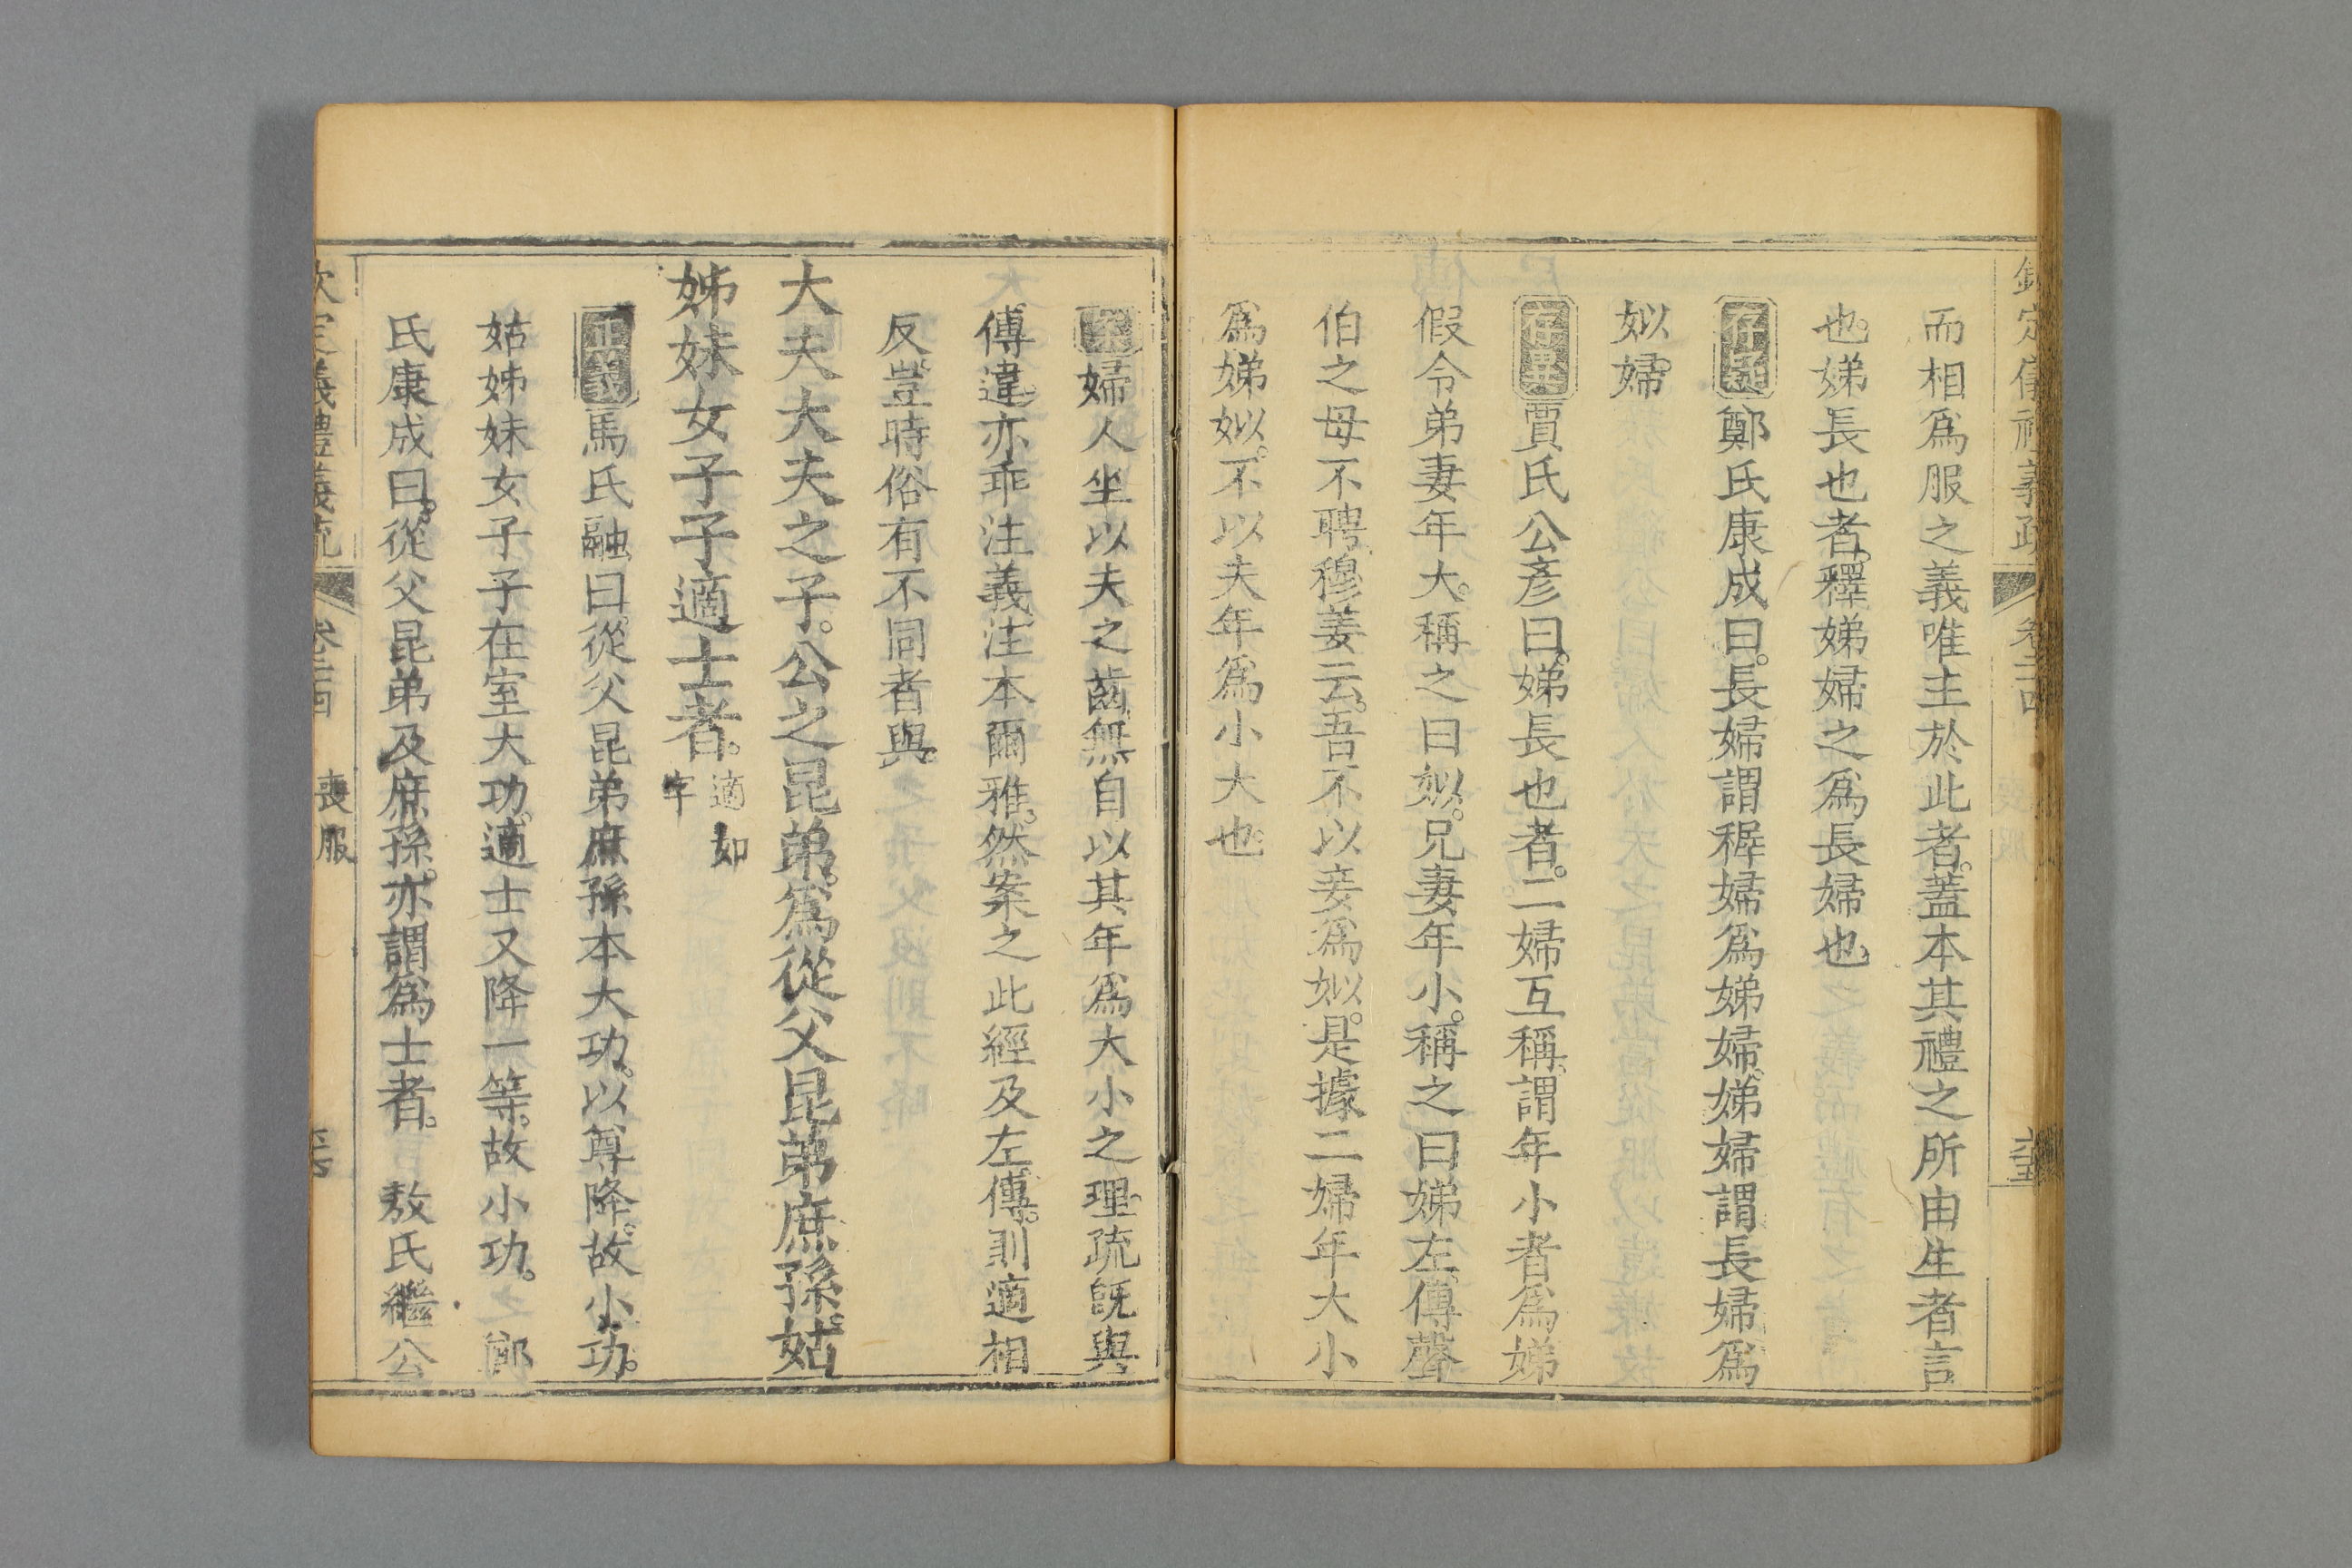 欽定儀禮義疏 卷二十四
而相爲服之義唯主於此者。蓋本其禮之所由生者言
也。娣長也者。釋娣婦之爲長婦也。
存疑 鄭氏康成曰。長婦謂穉婦爲娣婦。娣婦謂長婦爲
姒婦。
存異 賈氏公彥曰。娣長也者。二婦互稱。謂年小者爲娣
假令弟妻年大。稱之曰姒。兄妻年小。稱之曰娣。左傳聲
伯之母不聘。穆姜云。吾不以妾爲姒。是據二婦年大小
爲娣姒。不以夫年爲小大也。
案婦人坐以夫之齒。無自以其年爲大小之理。疏旣與
傳違。亦乖注義。注本爾雅。然案之此經及左傳。則適相
反。豈時俗有不同者與。
大夫大夫之子。公之昆弟。爲從父昆弟庶孫。姑
姊妹女子子適士者。適如字
正義 馬氏融曰。從父昆弟庶孫本大功。以尊降。故小功。
姑姊妹女子子在室大功。適士又降一等。故小功。 鄭
氏康成曰。從父昆弟及庶孫。亦謂爲士者。 敖氏繼公
欽定儀禮義疏 卷二十四 喪服